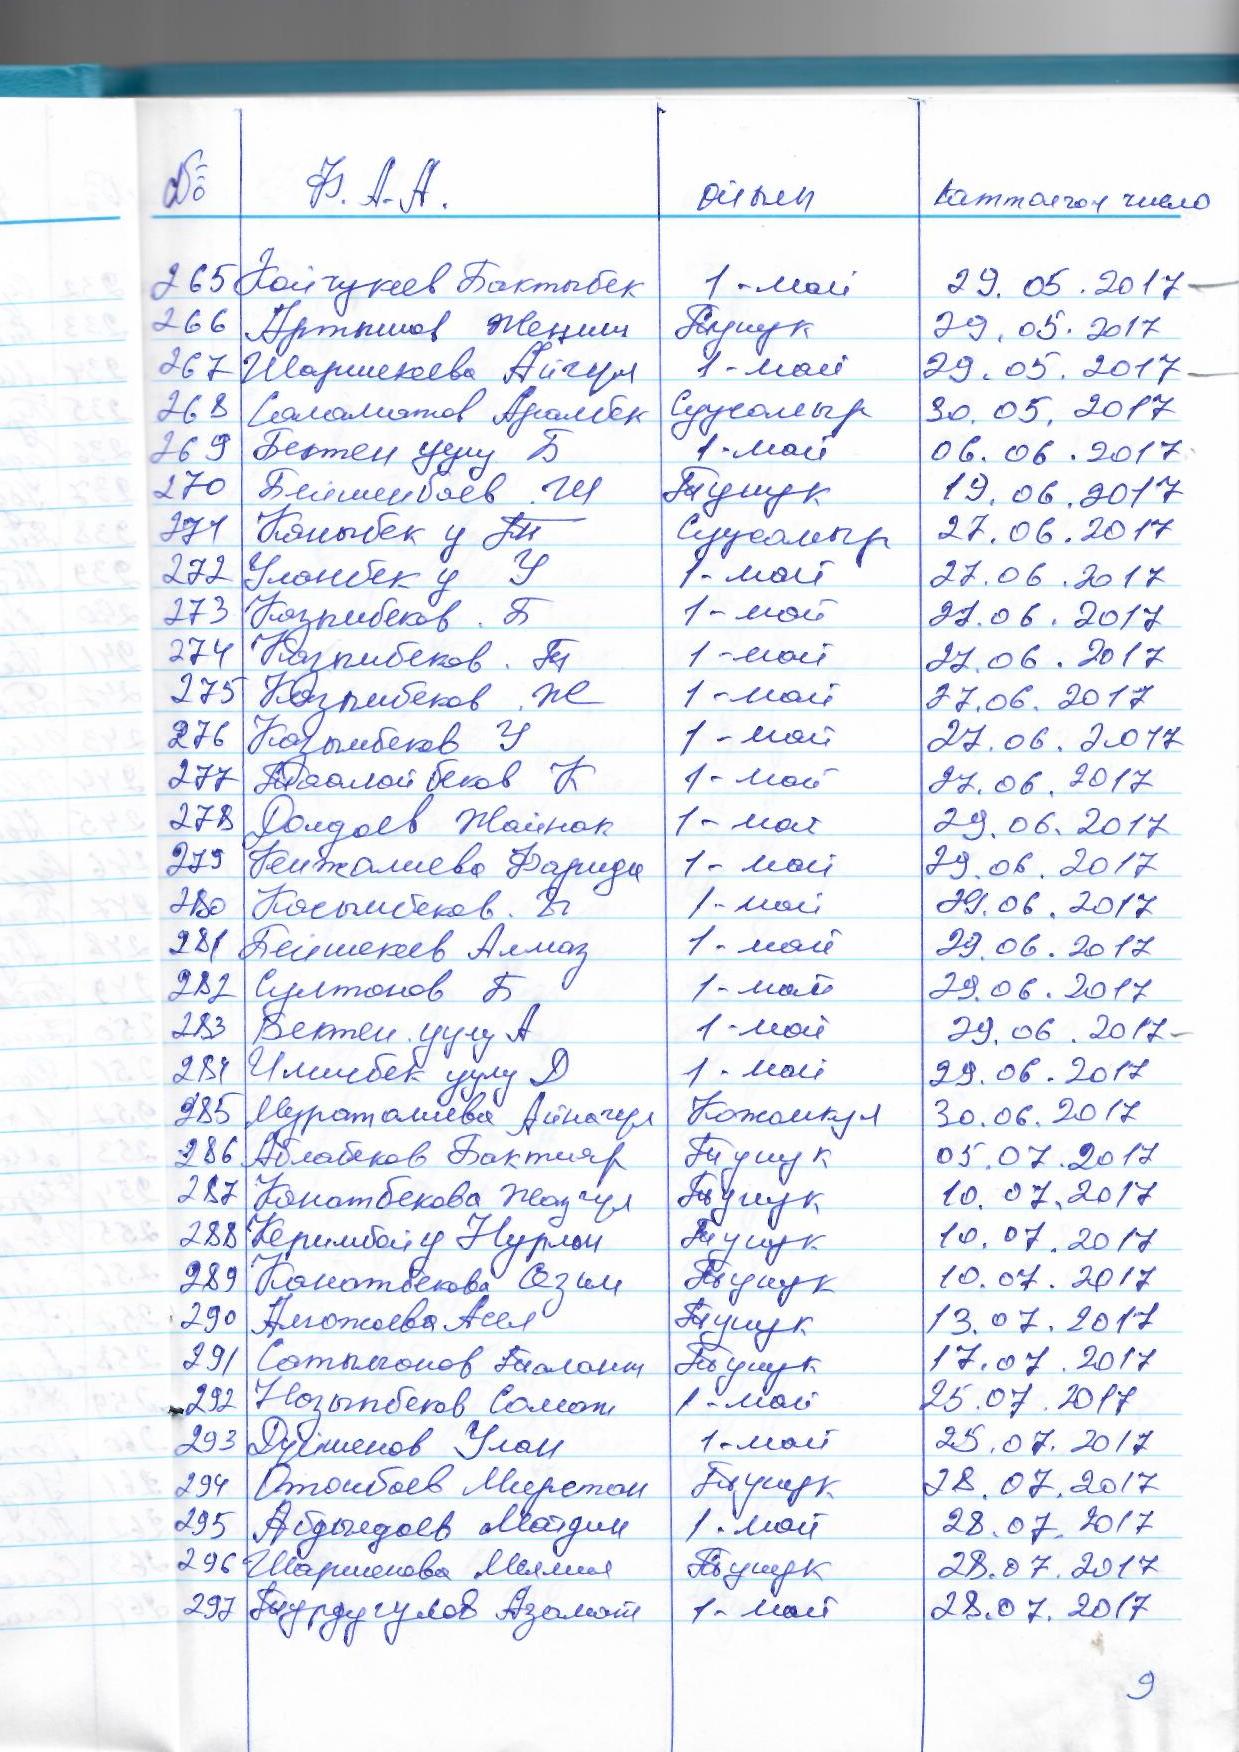 № Ф. А. А. айылы катталган число
265 Койчукеев Бактыбек 1-май 29.05.2017
266 Артышов Жеңиш Тунук 29.05.2017
267 Шаршекеева Айгул 1-май 29.05.2017
268 Саламатов Адамбек Суусамыр 30.05.2017
269 Бектен уулу Б 1-май 06.06.2017
270 Бейшенбаев Ш Тунук 19.06.2017
271 Каныбек у Т Суусамыр 27.06.2017
272 Уланбек у У 1-май 27.06.2017
273 Казыбеков. Б 1-май 27.06.2017
274 Казыбеков. Т 1-май 27.06.2017
275 Казыбеков. Ж 1-май 27.06.2017
276 Казыбеков У 1-май 27.06.2017
277 Таалайбеков К 1-май 27.06.2017
278 Долдоев Жайнак 1-май 29.06.2017
279 Кенжалиева Фарида 1-май 29.06.2017
280 Касымбеков. Ы 1-май 29.06.2017
281 Бейшекеев Алмаз 1-май 29.06.2017
282 Султанов Б 1-май 29.06.2017
283 Бектен уулу А 1-май 29.06.2017
284 Илимбек уулу Д 1-май 29.06.2017
285 Мураталиева Айнагул Кожомкул 30.06.2017
286 Аблабеков Бактияр Тунук 05.07.2017
287 Канатбекова Жазгул Тунук 10.07.2017
288 Керимбай у Нурлан Тунук 10.07.2017
289 Канатбекова Сезим Тунук 10.07.2017
290 Алгожоева Асел Тунук 13.07.2017
291 Сатылганов Таалант Тунук 17.07.2017
292 Назыпбеков Самат 1-май 25.07.2017
293 Дуйшенов Улан 1-май 25.07.2017
294 Отонбаев Мирстан Тунук 28.07.2017
295 Абдылдаев Майдин 1-май 28.07.2017
296 Шаршенова Милия Тунук 28.07.2017
297 Турдугулов Азамат 1-май 28.07.2017
9